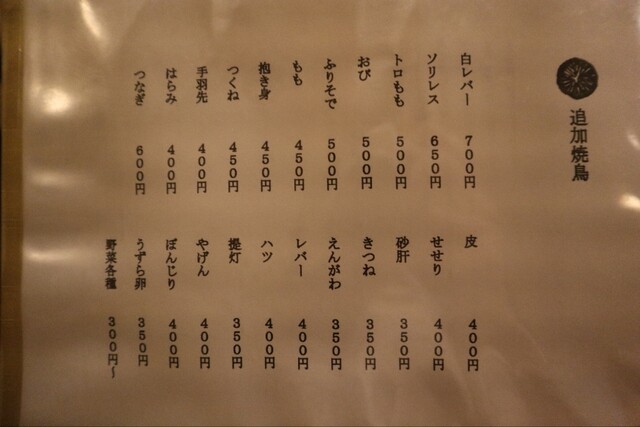 追加焼鳥
白レバー 700円
ソリレス 650円
トロもも 500円
おび 500円
ふりそで 500円
もも 450円
抱き身 450円
つくね 450円
手羽先 400円
はらみ 400円
つなぎ 600円
皮 400円
せせり 400円
砂肝 350円
きつね 350円
えんがわ 350円
レバー 400円
ハツ 400円
提灯 350円
やげん 400円
ぼんじり 400円
うずら卵 350円
野菜各種 300円～